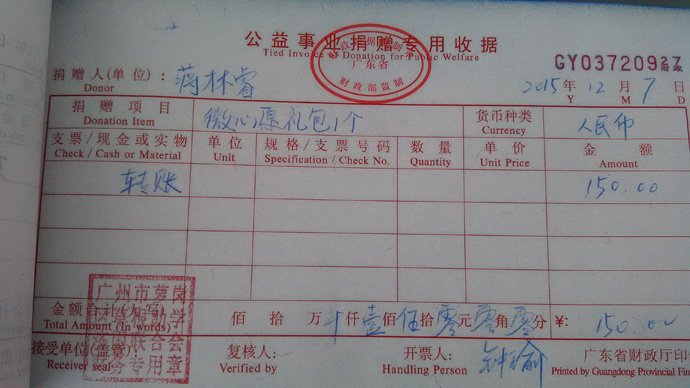 公益事业捐赠专用收据
Tied Invoice of Donation for Public Welfare
广东省
财政部监制
GY03720927
捐赠人(单位): 蒋林睿
Donor
2015年 12月 7日
Y M D
捐赠项目 微心愿礼包1个 货币种类 人民币
Donation Item Currency
支票/现金或实物 单位 规格/支票号码 数量 单价 金额
Check / Cash or Material Unit Specification / Check No. Quantity Unit Price Amount
转账 150.00
金额合计(大写) 佰 拾 万 仟 壹佰 伍拾 零元 零角 零分 ¥: 150.00
Total Amount (in words)
广州市萝岗
助学
联合会
财务专用章
接受单位(盖章): 复核人: 开票人: 钟瑜 广东省财政厅印
Receiver seal Verified by Handling Person Printed by Guangdong Provincial Fin